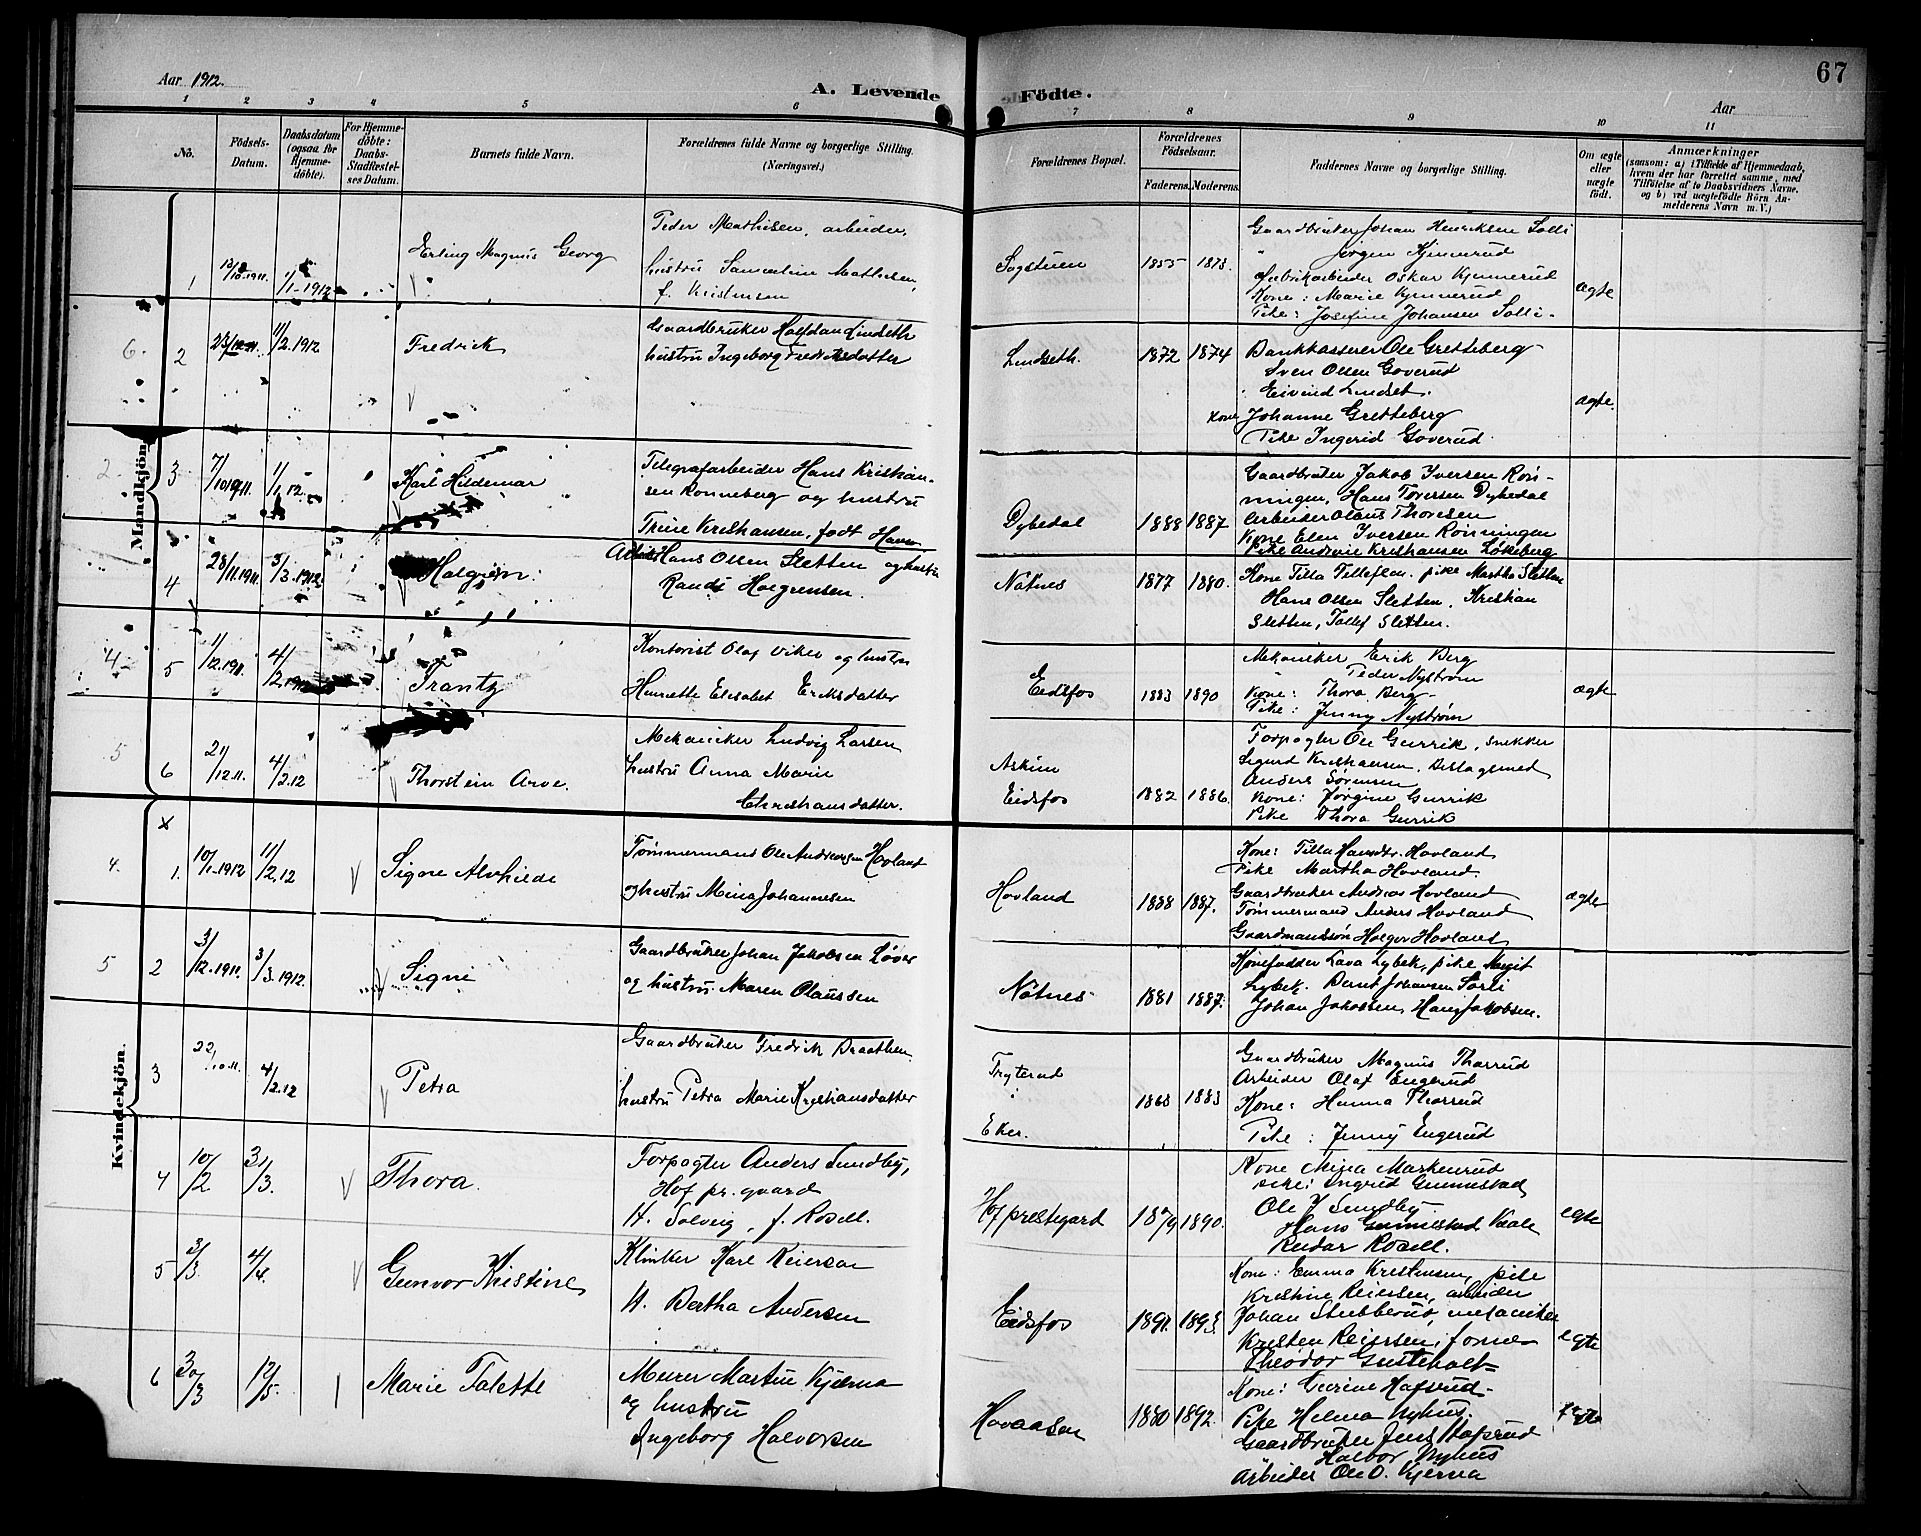 Aar 1912.
A. Levende Födte.
Aar
67
1 2 3 4 5 6 7 8 9 10 11
No.
Födsels-
Datum.
Daabsdatum
(ogsaa for
Hjemme-
döbte).
For Hjemme-
döbte:
Daabs-
Stadfæstel-
ses Datum.
Barnets fulde Navn.
Forældrenes fulde Navne og borgerlige Stilling.
(Næringsvei.)
Forældrenes Bopæl.
Forældrenes
Födselsaar.
Faderens. Moderens.
Faddernes Navne og borgerlige Stilling.
Om ægte
eller
uægte
födt.
Anmærkninger
(saasom: a) i Tilfælde af Hjemmedaab,
hvem der har forrettet samme, med
Tilföielse af to Daabsvidners Navne.
og b) ved uægtefödte Börn An-
melderens Navn m. V.)
Mandkjön.
1 1/1-1912
Erling Magnus Georg
Peder Mathisen, arbeider,
hustru Mathisen,
f. Kristensen
1855 1873.
Gaardbruker Johan Henriksen Solli
" Jørgen Kjennerud
Fabrikarbeider Oskar Kjennerud
Kone: Marie Kjennerud
Pike: Josefine Johansen Solli.
ægte
6. 2 11/2.1912
Fredrik
Gaardbruker Halfdan Lindseth
hustru Ingeborg Fredriksdatter
Lindseth. 1872 1874
Bankkasserer Ole Gretteberg
Sven Olsen Goverud
Eivind Lindset.
Kone Johanne Gretteberg
Pike Ingerid Goverud.
ægte.
2 3 7/10 1911. 1/1 12.
Karl Hildemar
Telegrafarbeider Hans Kristian-
sen Ronneberg og hustru
Trine Kristiansen, født
Dybedal 1888 1887
Gaardbruker Jakob Iversen Røn-
ningen, Hans Toversen Dybedal
Arbeider Olaus Thoresen
Kone Elen Iversen Rønningen
Pike Kristiansen Løkeberg
4 28/11.1911. 3/3.1912
Holgren.
Hans Olsen Sletten og hustru
Randi Holgrensen.
Natnes 1877 1880.
Kone Tilla pike Martha Sletten
Hans Olsen Sletten. Kristian
Sletten, Tollef Sletten.
4 5 1/12.1911. 4/2.1912
Frantz
Kontorist Olaf Viker og hustru
Henriette Elisabet Eriksdatter
Eidsfos 1883 1890
Mekaniker Erik Berg
" Peder Nystrøm
Kone: Thora Berg
Pike: Jenny Nystrøm
ægte
5 6 21/12.11. 4/2.12
Thorstein Arve.
Mekaniker Ludvig Larsen
hustru Anna Marie
Christiansdatter.
Eidsfos 1882 1886.
Forpagter Ole Gurrik, snekker
Sigurd Kristiansen,
Anders Sørensen
Kone: Jørgine Gurrik
Pike Thora Gurrik
Kvindekjön.
4. 1. 10/1-1912 11/2.12
Signe Alvhilde
Tømmermand Ole Andreasen Hovland
og hustru Mina Johannesen
Hovland 1888 1887.
Kone: Tilla Hovland
Pike Martha Hovland.
Gaardbruker Andreas Hovland
Tømmermand Anders Hovland
Gaardmandssøn Holger Hovland
ægte
5 2 3/12.1911. 3/3.1912.
Signe
Gaardbruker Johan Jakobsen
og hustru Maren Olaussen
Natnes 1881 1887.
Konefadder Lava Lybek, pike Margit
Lybek. Bernt Johansen Sørli
Johan Jakobsen, Hans Jakobsen.
3 22/10.11. 4/2.12
Petra
Gaardbruker Fredrik Braathen
hustru Petra Marie Kristiansdatter
Tryterud
Eker. 1868 1883
Gaardbruker Magnus Thorrud
Arbeider Olaf Engerud
Kone: Hanna Thorrud
Pike: Jenny Engerud
4 10/2 31/3.
Thora.
Forpagter Anders Sundby,
Hof pr.gaard
H. Solveig, f. Rosell.
Hof prestegard 1879 1890.
Kone Mina Markerud
pike: Ingrid Gunnestad
Ole J Sundby.
Hans Gunnestad
Reidar Rosell.
egte
5 3/3. 4/4.
Gunvor Kristine
Klinker Karl Reiersen
H. Bertha Andersen
Eidsfos 1891. 1893.
Kone: Emma Kristensen, pike
Kristine Reiersen, arbeider
Johan Stubberud, mekaniker
Kristen Reiersen, former
Theodor
egte
6 30/3 12/5.
Marie Talette
Murer Martin Kjerna
og hustru
Ingeborg Halvorsen
Hovaasen 1880 1892.
Kone:
Pike Helma Nyhus.
Gaardbruker Jens
Halvor Nyhus
Arbeider Ole O. Kjerna